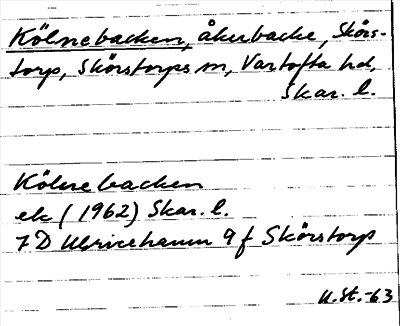 Kölnebacken, åkerbacke, Skörs-
torp, Skörstorps sn, Vartofta hd,
Skar. l.
Kölnebacken
ek (1962) Skar. l.
7 D Ulricehamn 9 f Skörstorp
U.St.-63